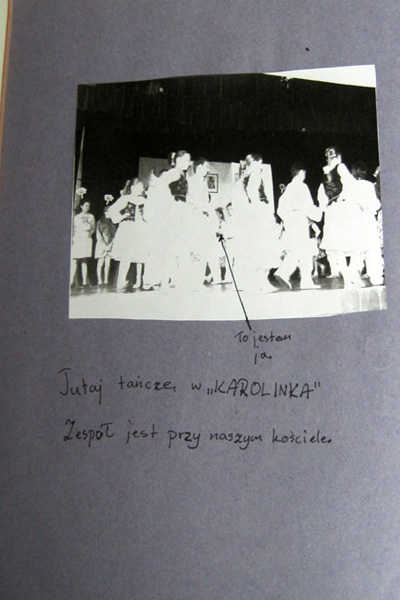 To jestem
ja.
Tutaj tańczę w „KAROLINKA"
Zespół jest przy naszym kościele.